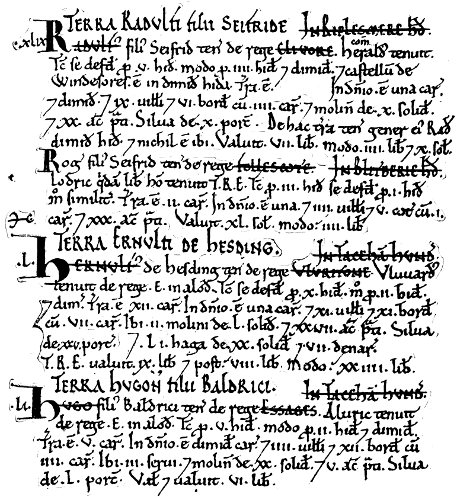 TERRA RADULFI FILII SEIFRIDE. IN RIPLESMERE HD.
.xlix. RADULF' fili' Seifrid ten' de rege CLIVORE. com herald' tenuit.
Tc̄ se defd' p v. hid. modo p iiii. hid' 7 dimid'. 7 castellū de
Windesores. ē in dimid hida. Tra ē. In dnio ē una car'
7 dimid. 7 ix. uilli 7 vi. bord' cū iiii. car'. 7 molin' de x. solid'.
7 xx. ac' pti. Silua de x. porc'. De hac tra ten' gener ei' Rad'
dimid hid 7 nichil ē ibi. Valuit vii. lib. modo iiii. lib. 7 x. sol'.
Rog' fili' Seifrid ten' de rege SOLLESCOTE. IN BLITBERIE HD.
Lodric qdā lib' hō tenuit T.R.E. Tc̄ p iii. hid' se defd' p i. hid'
m̄ similit'. Tra ē ii. car'. In dnio ē una. 7 iiii. uilli 7 v. cot' cū i.
car'. 7 xxx. ac' pti. Valuit xl. sol'. modo iiii. lib.
TERRA ERNULFI DE HESDING. IN TACEHĀ HUND.
.L. HERNULF' de hesding ten' de rege Uluuard'
tenuit de rege. E. in alod'. Tc̄ se defd' p x. hid. m̄ p ii. hid.
7 dim'. Tra ē xii. car'. In dnio ē una car'. 7 xi. uilli 7 xi. bord'
cū vii. car'. Ibi ii. molini de L. solid'. 7 xxvii. ac' pti. Silua
de xxv. porc'. 7 i. haga de xx. solid' 7 vii. denar'.
T.R.E. ualuit ix. lib. 7 post' viii. lib. modo xiiii. lib.
TERRA HUGON' FILII BALDRICI. IN TACEHĀ HUND.
.Li. HUGO fili' Baldrici ten' de rege ESSAGES. Aluric tenuit
de rege. E. in alod'. Tc̄ p v. hid'. modo p ii. hid' 7 dimid'.
Tra ē v. car'. In dnio ē dimid car'. 7 iiii. uilli 7 xii. bord' cū
iiii. car'. Ibi iii. serui. 7 molin' de xx. solid'. 7 v. ac' pti. Silua
de L. porc'. Val' 7 ualuit vi. lib.